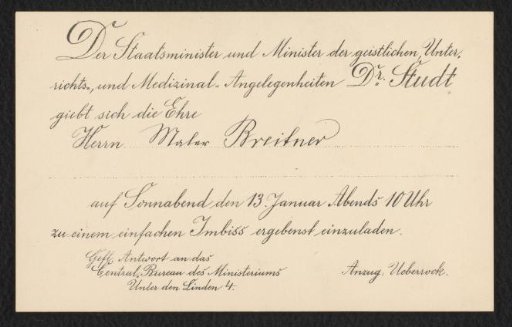 Der Staatsminister und Minister der geistlichen, Unter-
richts-, und Medizinal-Angelegenheiten Dr. Studt
giebt sich die Ehre
Herrn Maler Breitner
auf Sonnabend, den 13. Januar Abends 10 Uhr
zu einem einfachen Imbiss ergebenst einzuladen.
Gefl. Antwort an das
Central-Bureau des Ministeriums
Unter den Linden 4.
Anzug. Ueberrock.